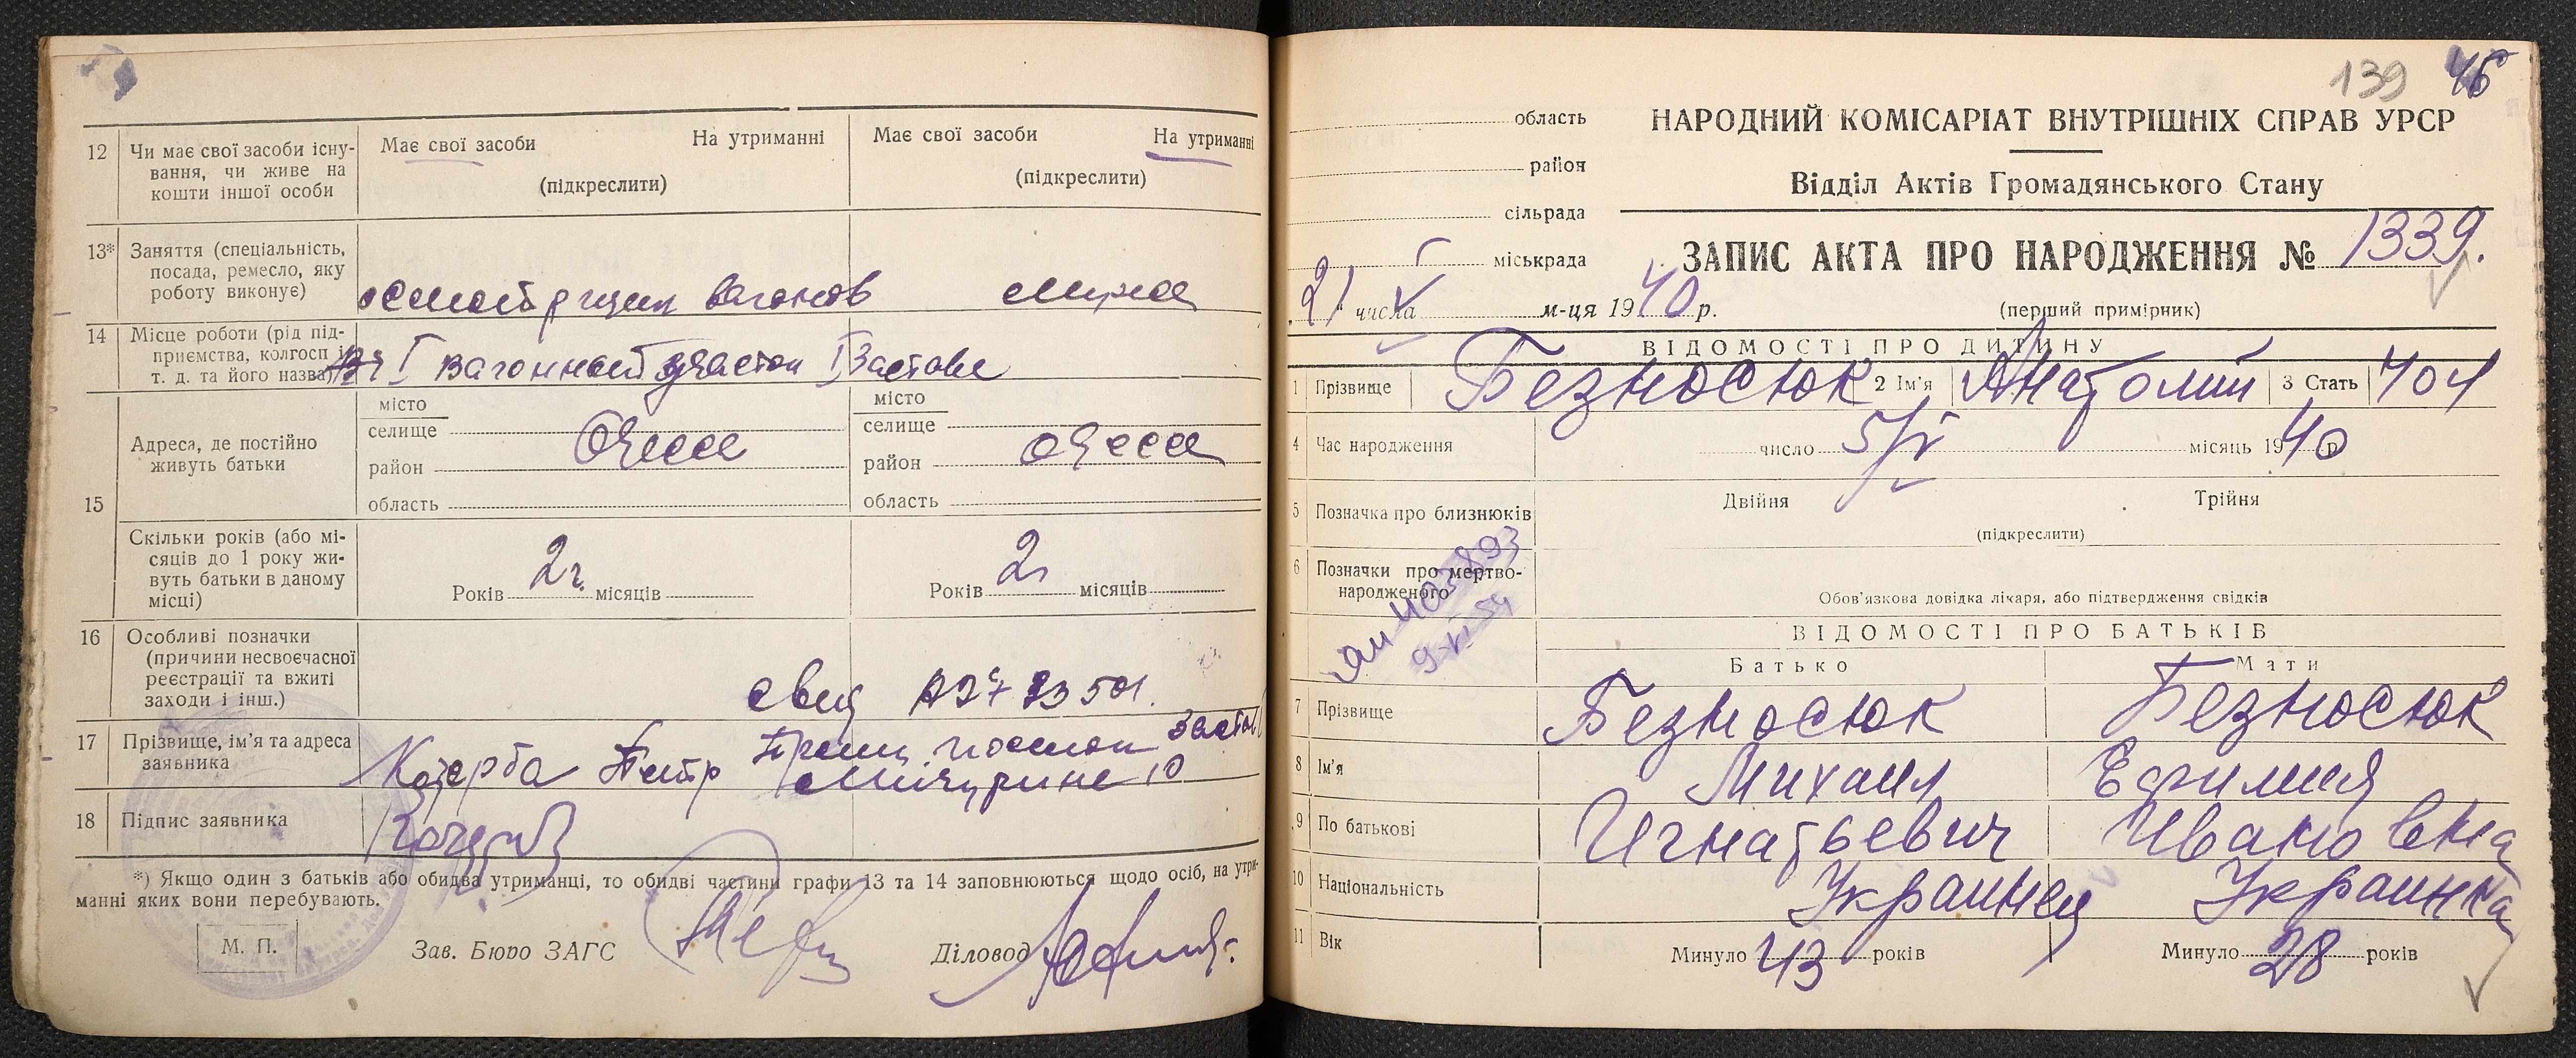 12 Чи має свої засоби існу-
вання, чи живе на
кошти іншої особи
Має свої засоби На утриманні
(підкреслити)
Має свої засоби На утриманні
(підкреслити)
13* Заняття (спеціальність,
посада, ремесло, яку
роботу виконує)
вагонов
14 Місце роботи (рід під-
приємства, колгосп і
т. д. та його назва)
I Вагонной участок I Заставе
15 Адреса, де постійно
живуть батьки
місто
селище
район
область
Одесса
місто
селище
район
область
Одесса
Скільки років (або мі-
сяців до 1 року жи-
вуть батьки в даному
місці)
Років 2 г. місяців
Років 2 г місяців
16 Особливі позначки
(причини несвоєчасної
реєстрації та вжиті
заходи і інш.)
свид
17 Прізвище, ім'я та адреса
заявника
Петр
10
18 Підпис заявника
*) Якщо один з батьків або обидва утриманці, то обидві частини графи 13 та 14 заповнюються щодо осіб, на утри-
манні яких вони перебувають.
М. П. Зав. Бюро ЗАГС Діловод
139 46
область
район
сільрада
міськрада
21 числа V м-ця 1940 р.
НАРОДНИЙ КОМІСАРІАТ ВНУТРІШНІХ СПРАВ УРСР
Відділ Актів Громадянського Стану
ЗАПИС АКТА ПРО НАРОДЖЕННЯ № 1339.
(перший примірник)
ВІДОМОСТІ ПРО ДИТИНУ
1 Прізвище Безносюк 2 Ім'я Анатолий 3 Стать чол
4 Час народження число 5/V місяць 1940 р
5 Позначка про близнюків Двійня Трійня
(підкреслити)
6 Позначки про мертво-
народженого
Обов'язкова довідка лікаря, або підтвердження свідків
ВІДОМОСТІ ПРО БАТЬКІВ
Батько Мати
7 Прізвище Безносюк Безносюк
8 Ім'я Михаил Ефимия
9 По батькові Игнатьевич Ивановна
10 Національність Украинец Украинка
11 Вік Минуло 43 років Минуло 28 років